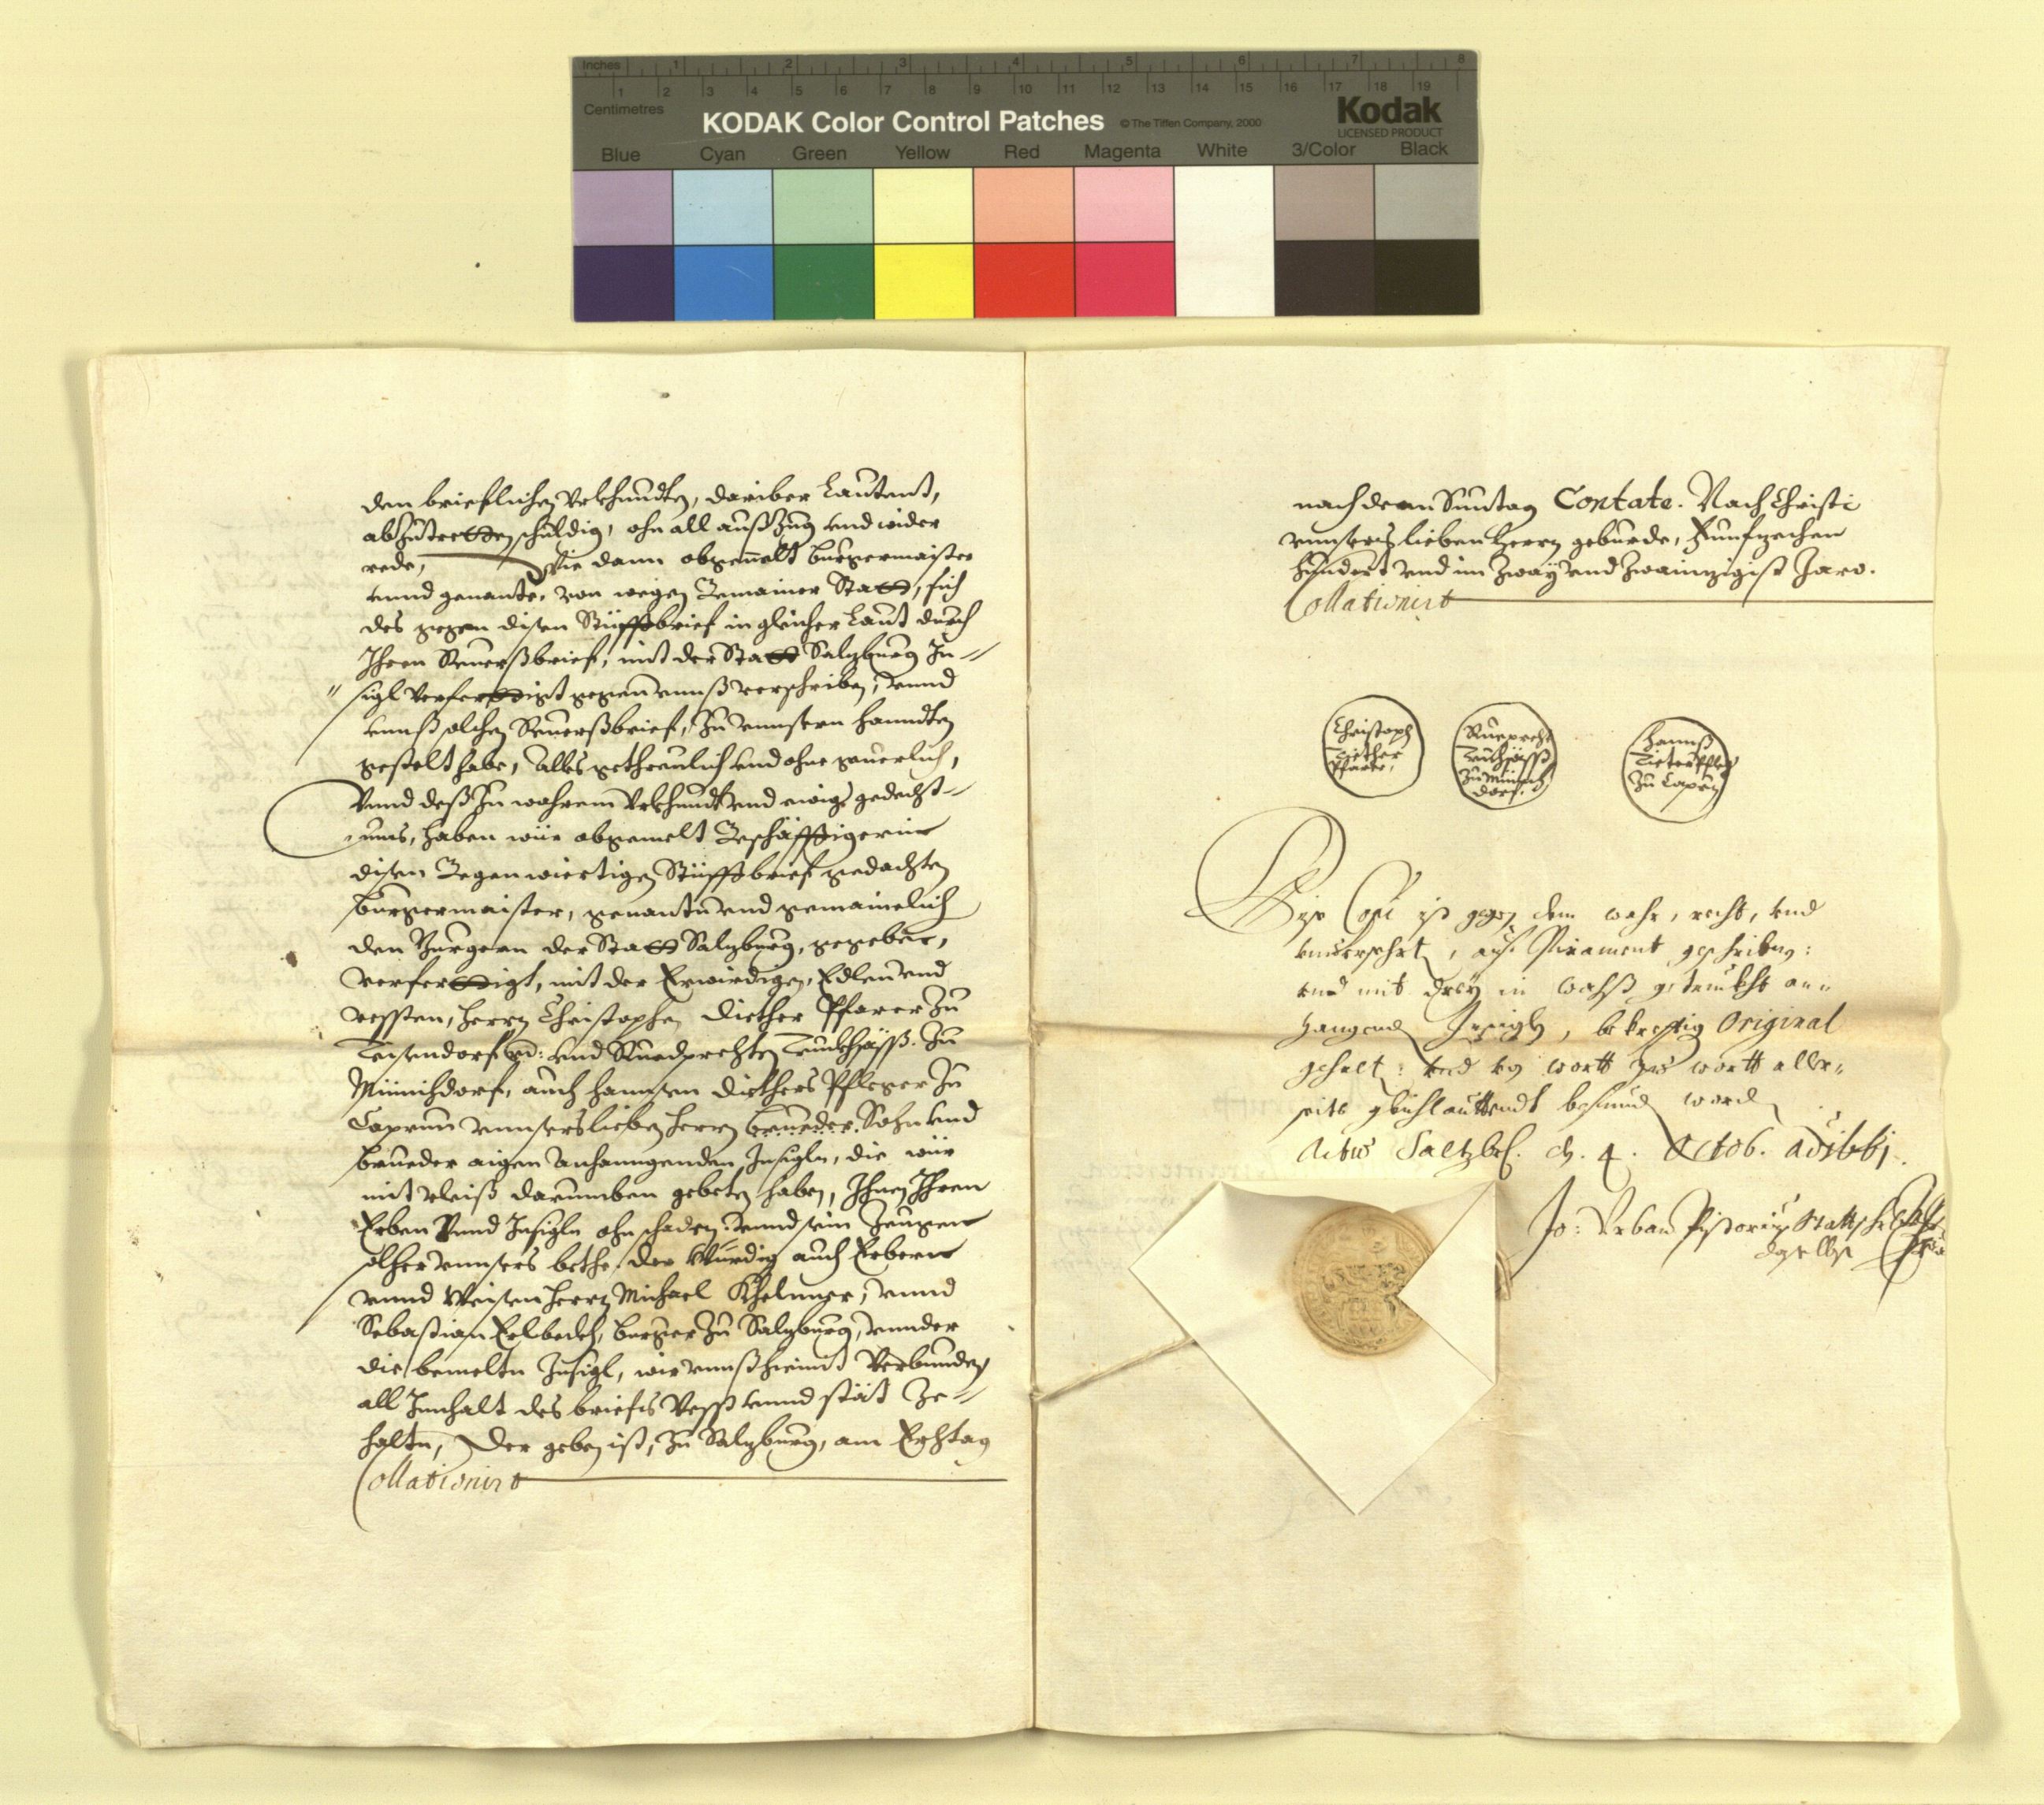 Inches 1 2 3 4 5 6 7 8
1 2 3 4 5 6 7 8 9 10 11 12 13 14 15 16 17 18 19
Centimetres
KODAK Color Control Patches © The Tiffen Company, 2000 Kodak
LICENSED PRODUCT
Blue Cyan Green Yellow Red Magenta White 3/Color Black
den brieflichen Vrkhundten, dariber Lautent,
abzutretten schuldig, ohn all auszug vnd wider
rede, Wie dann obgemelt burgermaister
vnnd genante, von wegen Gemainer Statt, sich
des gegen disen Stüfftbrief in gleicher Laut durch
Ihren Reuerßbrief, mit der Statt Salzburg In-
sigl Verferttigt gegen vnnß verschriben, vnnd
vnnß solchen Reuerßbrief, zu vnnsern hanndten
gestelt habe, Alles getheulich vnd ohne geuerlich,
Vnnd deß zu wahrem Vrkhundt vnd ewige gedecht-
nuns, haben wür obgemelt Geschäfftigerin
disen Gegenwiertigen Stüfftbrief gedachten
burgermaister, genantn vnd gemainelich
den Burgern der Statt Salzburg, gegeben,
verferttigt, mit der Erwirdigen, Edlen vnd
vessten, Herrn Christophen Diether Pfarer zu
Teisendorf vnd Ruedprechten Truckhsäß zu
Münichdorf, auch hannsen Diethers Pfleger zu
Caprun vnnsers lieben Herrn brueder, Sohn vnd
brueder aigen Anhanngenden Insigln, die wür
mit vleiß darumben gebeten haben, Ihnen Ihren
Erben Vnnd Insigln ohn schaden, vnnd sein Zeugen
solher vnnsers bethe der Würdig auch Erbern
vnnd Weisen Herrn Michael Khelmer, vnnd
Sebastian burger zu Salzburg, vnnder
die bemelten Insigl, wir vnnß hiemit Verbunden
all Innhalt des briefs Vesst vnnd stät Ze-
haltn, Der geben ist, zu Salzburg, am Erchtag
Collationirt
nach dem Suntag Contate. Nach Christi
vnnsers lieben Herrn geburde, Funfzechen
Hundert vnd im Zway vnd Zwainzigist Jaro.
Collationirt
Christoph
Diether
Pfarer,
Rueprecht
Truckhsäß
zu Münich
dorf.
Hannß
Dieter Pfleg
zu Caprun
Dise Copi ist gegen dem wahr, recht, vnd
vnuersehrt, auf Pirament geschriben:
vnd mit drey in wachß getrukht an-
hangenden Insigln, bekrefftig Original
gehalt: vnd von wortt zu wortt aller-
seits gleichlauttendt befunden worden
Actum Saltzb. d. 4. Octob. Aō 1661.
Jo: Vrban Pistorius Stattschreiber
daselbst